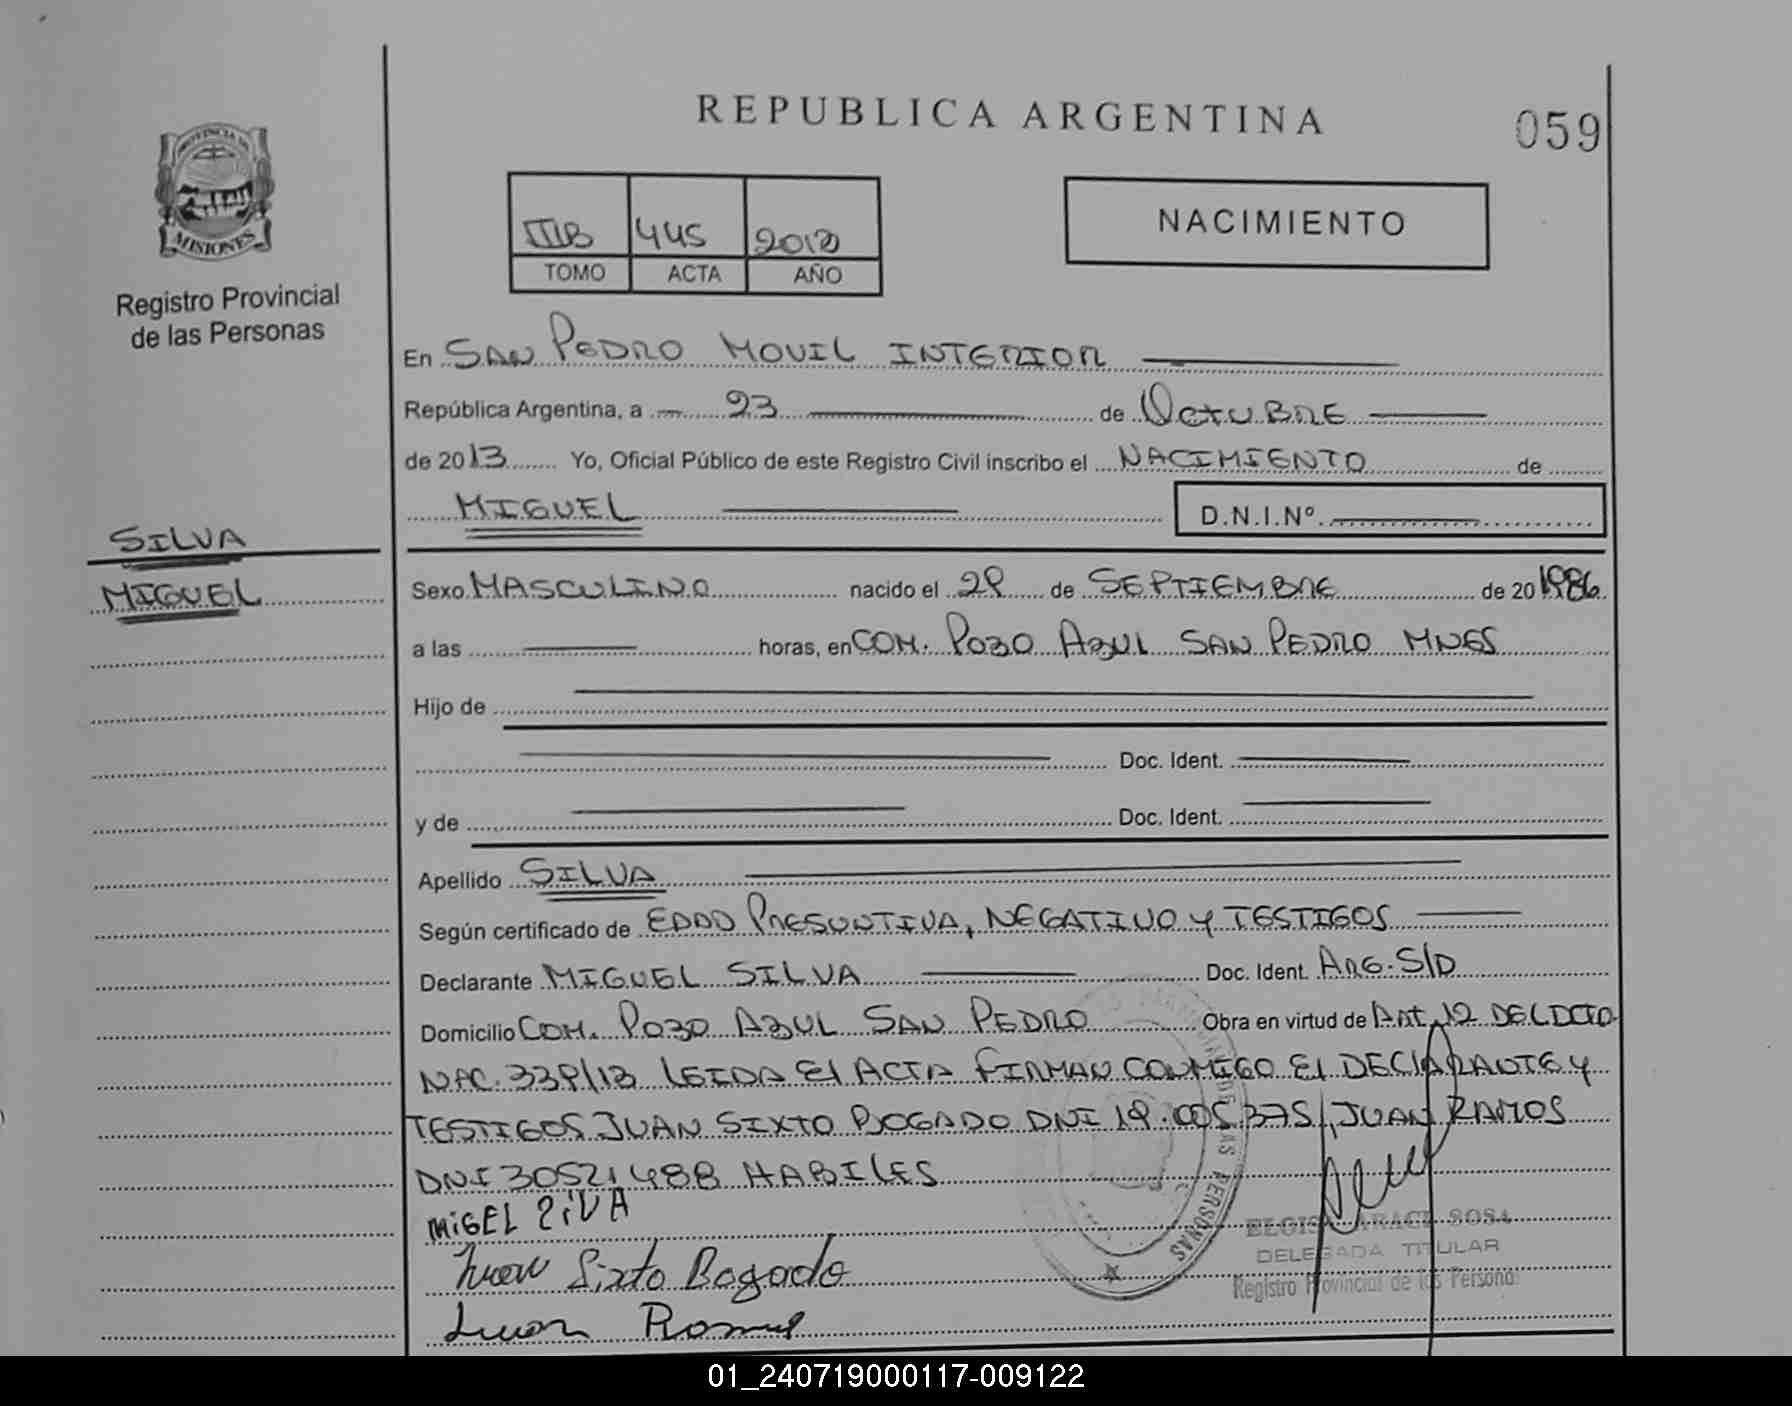 REPUBLICA ARGENTINA
059
PROVINCIA DE
MISIONES
Registro Provincial
de las Personas
IIIB 445
TOMO ACTA AÑO
NACIMIENTO
En SAN PEDRO MOVIL INTERIOR
República Argentina, a 23 de OCTUBRE
de 2013 Yo, Oficial Público de este Registro Civil inscribo el NACIMIENTO de
MIGUEL D.N.I.Nº.
SILVA
MIGUEL
Sexo MASCULINO nacido el 29 de SEPTIEMBRE de 20 1986
a las horas, en COM. POZO AZUL SAN PEDRO MNES
Hijo de
Doc. Ident.
y de Doc. Ident.
Apellido SILVA
Según certificado de EDAD PRESUNTIVA, NEGATIVO Y TESTIGOS
Declarante MIGUEL SILVA Doc. Ident. ARG. S/D
Domicilio COM. POZO AZUL SAN PEDRO Obra en virtud de ART. 12 DEL DCTO
NAC. 339/13 LEIDA El ACTA FIRMAN CONMIGO El DEClARANTE Y
TESTIGOS JUAN SIXTO BOGADO DNI 19.005.375, JUAN RAMOS
DNI 30521488 HABILES
MiGEL SiVA
Juan Sixto Bogado
Juan Ramos
PERSONAS
ELOISA ARACI SOSA
DELEGADA TITULAR
Registro Provincial de las Persona
01_240719000117-009122